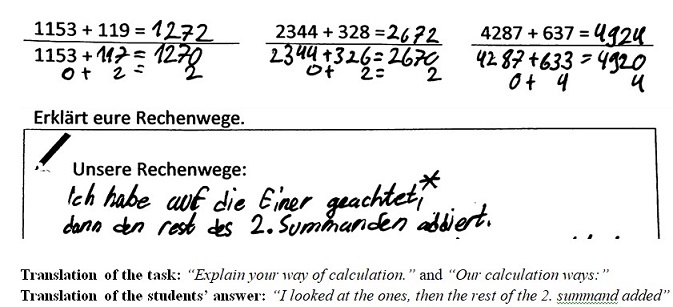 1153 + 119 = 1272 2344 + 328 = 2672 4287 + 637 = 4924
1153 + 117 = 1270 2344 + 326 = 2670 4287 + 633 = 4920
0 + 2 = 2 0 + 2 = 2 0 + 4 4
Erklärt eure Rechenwege.
Unsere Rechenwege:
Ich habe auf die Einer geachtet,*
dann den rest des 2. Summanden addiert.
Translation of the task: “Explain your way of calculation.” and “Our calculation ways:”
Translation of the students’ answer: “I looked at the ones, then the rest of the 2. summand added”